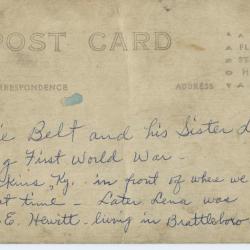 POST CARD
CORRESPONDENCE
ADDRESS
ie Belt and his Sister L
g First World War -
kins, Ky. - in front of where we
at time - Later Lena was
. E. Hewitt - living in Brattleboro